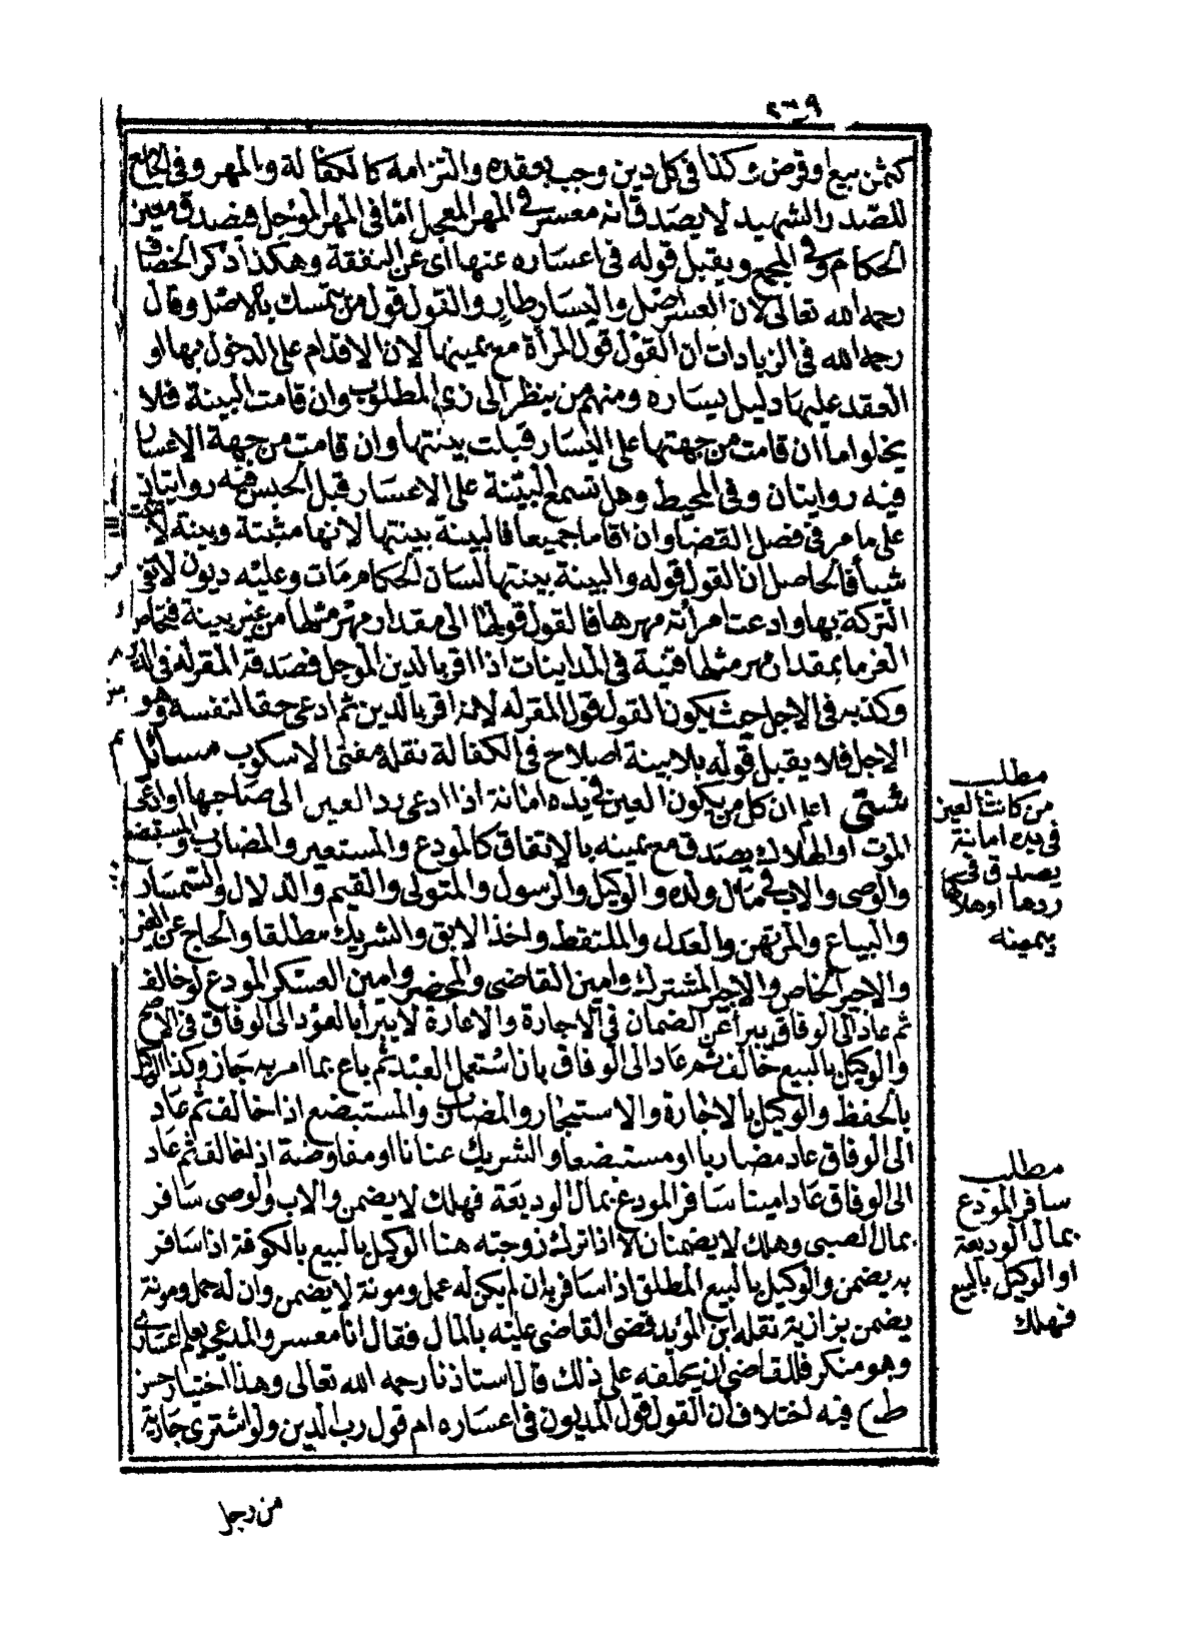 ٢٦٩
كثمن بيع او قرض وكذا في كل دين وجب بعقده والتزامه كالكفالة والمهر وفي الجامع
للصدر الشهيد لا يصدق انه معسر في المهر المعجل اما في المهر المؤجل فيصدق معين
الحكام وفي المجمع ويقبل قوله في اعساره عنها اى عن النفقة وهكذا ذكر الخصاف
رحمه الله تعالى لان العسر اصل واليسار طار والقول قول من يتمسك بالاصل وقال
رحمه الله في الزيادات ان القول قول المرأة مع يمينها لان الاقدام على الدخول بها او
العقد عليها دليل يساره ومنهم من ينظر الى زى المطلوب وان قامت البينة فلا
يخلوا ما ان قامت من جهتها على اليسار قبلت بينتها وان قامت من جهة الاعسار
فيه روايتان وفي المحيط وهل تسمع البينة على الاعسار قبل الحبس فيه روايتان
على ما مر في فصل القضا وان اقاما جميعا فالبينة بينتها لانها مثبتة وبينة لا تثبت
شيأ فالحاصل ان القول قوله والبينة بينتها لسان الحكام مات وعليه ديون لا تفى
التركة بها وادعت امرأته مهرها فالقول قولها الى مقدار مهر مثلها من غير بينة فتحاص
الغرما بمقدار مهر مثلها قنية في المداينات اذا اقر بالدين المؤجل فصدقه المقر له في الدين
وكذبه في الاجل حيث يكون القول قول المقر له لانه اقر بالدين ثم ادعى حقا لنفسه وهو
الاجل فلا يقبل قوله بلا بينة اصلاح في الكفالة نقله مفتى الاسكوب مسائل
شتى اعلم ان كل من يكون العين في يده امانة اذا ادعى رد العين الى صاحبها او ادعى
الموت او الهلاك يصدق مع يمينه بالاتفاق كالمودع والمستعير والمضارب والمستبضع
والوصى والاب في مال ولده والوكيل والرسول والمتولى والقيم والدلال والسمسار
والبياع والمرتهن والعدل والملتقط واخذ الابق والشريك مطلقا والحاج عن الغير
والاجير الخاص والاجير المشترك وامين القاضى والمحضر وامين العسكر المودع لو خالف
ثم عاد الى الوفاق يبرأ عن الضمان في الاجارة والاعارة لا يبرأ بالعود الى الوفاق في الاصح
والوكيل بالبيع خالف ثم عاد الى الوفاق بان استعمل العبد ثم باع بما امر به جاز وكذا الوكيل
بالحفظ والوكيل بالاجارة والاستيجار والمضارب والمستبضع اذا خالف ثم عاد
الى الوفاق عاد مضاربا او مستبضعا والشريك عنانا او مفاوضة اذا خالف ثم عاد
الى الوفاق عاد امينا سافر المودع بمال الوديعة فهلك لا يضمن والاب والوصى سافر
بمال الصبى وهلك لا يضمنان الا اذا ترك زوجته هنا الوكيل بالبيع بالكوفة اذا سافر
به يضمن والوكيل بالبيع المطلق اذا سافر به ان لم يكن له حمل ومونة لا يضمن وان له حمل ومونة
يضمن بزازية نقله ابن المؤيد قضى القاضى عليه بالمال فقال انا معسر والمدعى يعلم اعسارى
وهو منكر فللقاضى ان يحلفه على ذلك قال استاذنا رحمه الله تعالى وهذا اختيار حسن
فيه اختلاف ان القول قول المديون في اعساره ام قول رب الدين ولو اشترى جارية
من رجل
مطلب
من كانت العين
في يده امانة
يصدق في
ردها او هلاكها
بيمينه
مطلب
سافر المودع
بمال الوديعة
او الوكيل بالبيع
فهلك